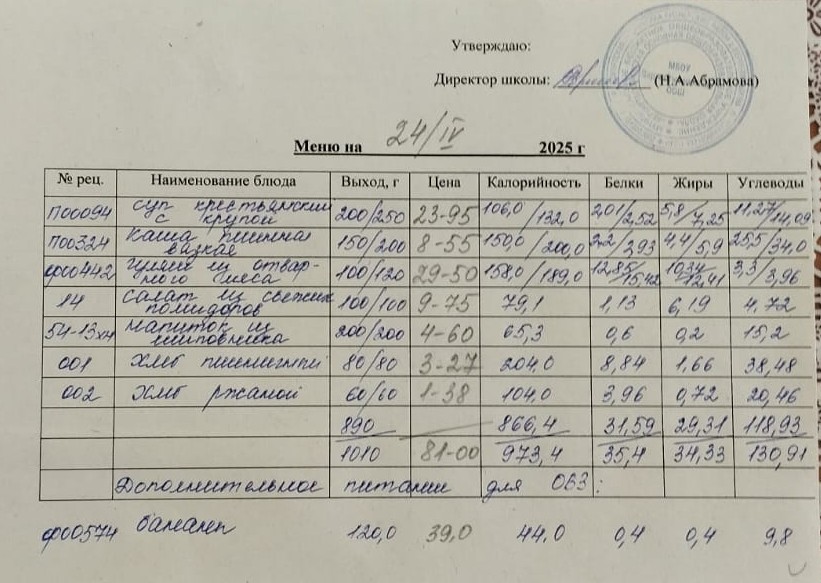 Утверждаю:
Директор школы: (Н.А.Абрамова)
МБОУ
ОШ
Меню на 24/IV 2025 г
№ рец. Наименование блюда Выход, г Цена Калорийность Белки Жиры Углеводы
П00094 суп крестьянский с крупой 200/250 23-95 106,0/132,0 2,01/2,52 5,8/7,25 11,27/14,09
П00324 Каша пшенная вязкая 150/200 8-55 150,0/200,0 2,2/2,93 4,4/5,9 25,5/34,0
ф00442 гуляш из отвар-ного мяса 100/120 29-50 158,0/189,0 12,85/15,42 10,34/12,41 3,3/3,96
14 салат из свежих помидоров 100/100 9-75 79,1 1,13 6,19 4,72
54-13хн напиток из шиповника 200/200 4-60 65,3 0,6 0,2 15,2
001 Хлеб пшеничный 80/80 3-27 204,0 8,84 1,66 38,48
002 Хлеб ржаной 60/60 1-38 104,0 3,96 0,72 20,46
890 866,4 31,59 29,31 118,93
1010 81-00 973,4 35,4 34,33 130,91
Дополнительное питание для ОВЗ:
ф00574 бананы 120,0 39,0 44,0 0,4 0,4 9,8